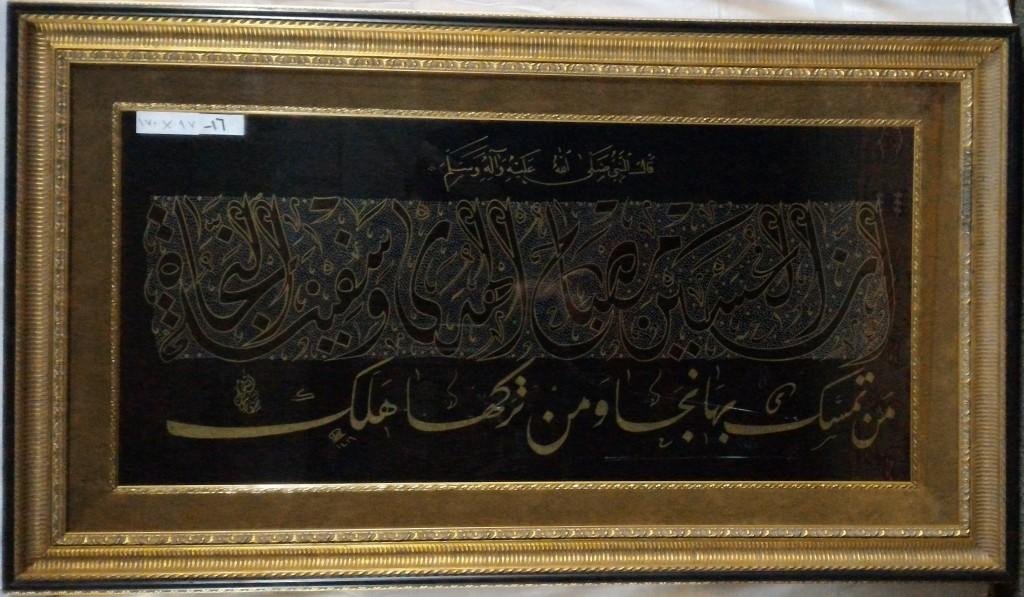 ١٦- ٩٧ × ١٧٠
قال النبي صلى الله عليه وآله وسلم
إن الحسين مصباح الهدى وسفينة النجاة
من تمسك بها نجا ومن تركها هلك